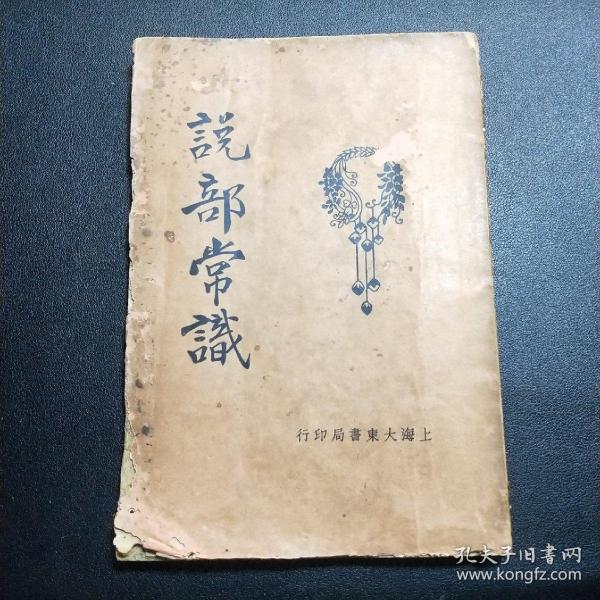 説部常識
上海大東書局印行
孔夫子旧书网
www.kongfz.com